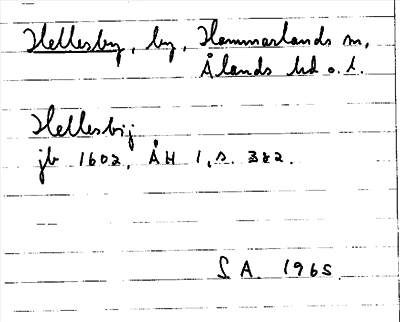 Hellesby, by, Hammarlands sn,
Ålands hd o. l.
Hellesbij
jb 1602, ÅH 1, s. 382.
S A. 1965.